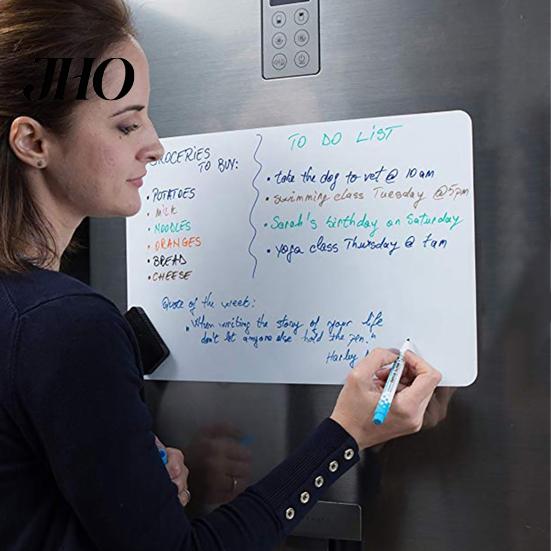 JHO
GROCERIES
TO BUY:
• POTATOES
• MILK
• NOODLES
• ORANGES
• BREAD
• CHEESE
TO DO LIST
• take the dog to vet @ 10 am
• swimming class Tuesday @ 5pm
• Sarah's birthday on Saturday
• yoga class Thursday @ 7am
Quote of the week:
• "When writing the story of your life
don't let anyone else hold the pen."
Harley